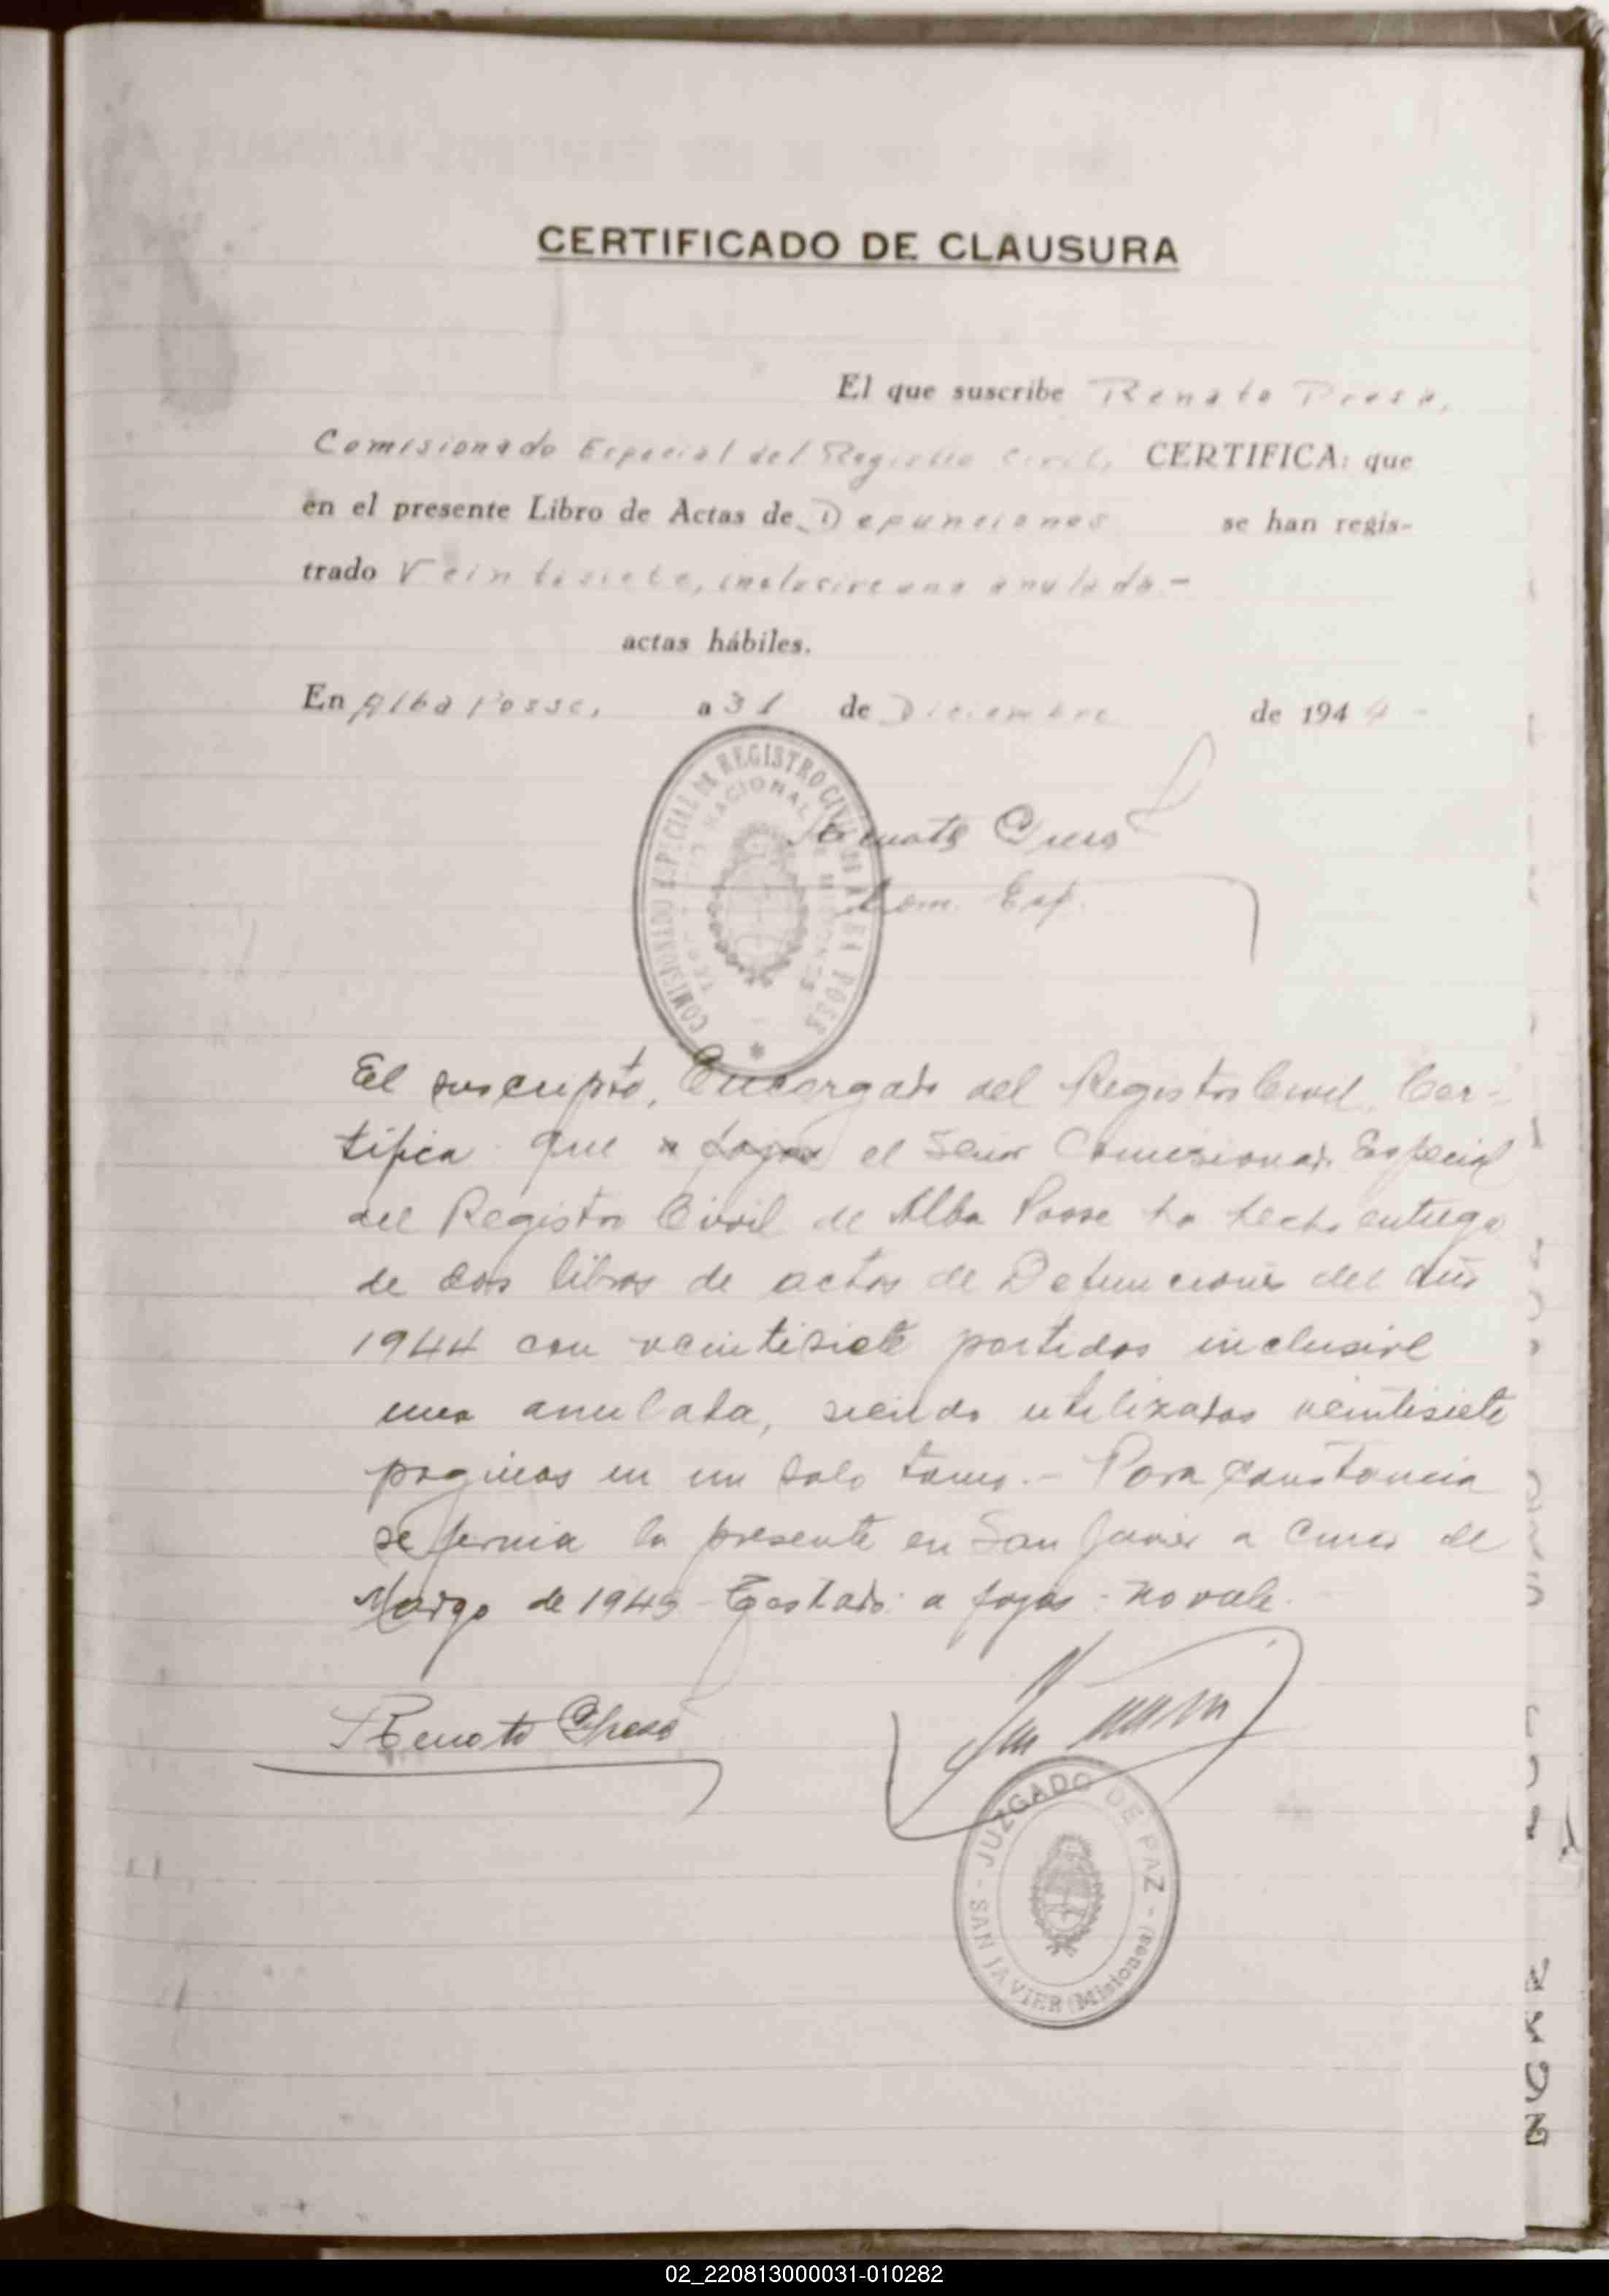 CERTIFICADO DE CLAUSURA
El que suscribe Renato Presa,
Comisionado Especial del Registro Civil, CERTIFICA: que
en el presente Libro de Actas de Defunciones se han regis-
trado Veintisiete, inclusive una anulada.-
actas hábiles.
En Alba Posse, a 31 de Diciembre de 1944-
COMISIONADO ESPECIAL DE REGISTRO CIVIL DE ALBA POSSE
TERRITORIO NACIONAL DE MISIONES
Renato
Com. Esp.
El suscripto, Encargado del Registro Civil, Cer-
tifica que a fojas el Señor Comisionado Especial
del Registro Civil de Alba Posse ha hecho entrega
de dos libros de actas de Defunciones del año
1944 con veintisiete partidas inclusive
una anulada, siendo utilizadas veintisiete
paginas en un solo tomo.- Para constancia
se firma la presente en San Javier a cinco de
Marzo de 1945 - Testado: a fojas - no vale.
Renato
JUZGADO DE PAZ - SAN JAVIER (Misiones) -
02_220813000031-010282